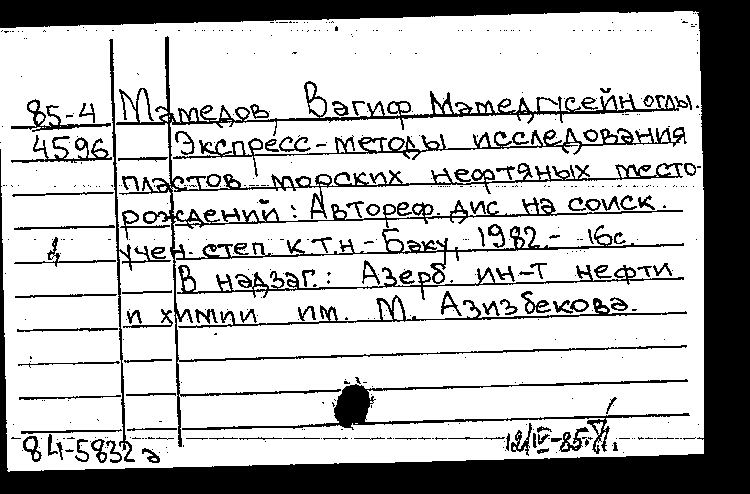 85-4 Мамедов, Вагиф Мамедгусейн оглы.
4596 Экспресс-методы исследования
пластов морских нефтяных место-
рождений: Автореф. дис на соиск.
учен. степ. к.т.н.- Баку, 1982 - 16с.
В надзаг.: Азерб. ин-т нефти
и химии им. М. Азизбекова.
84-5832а 12/IV-85.